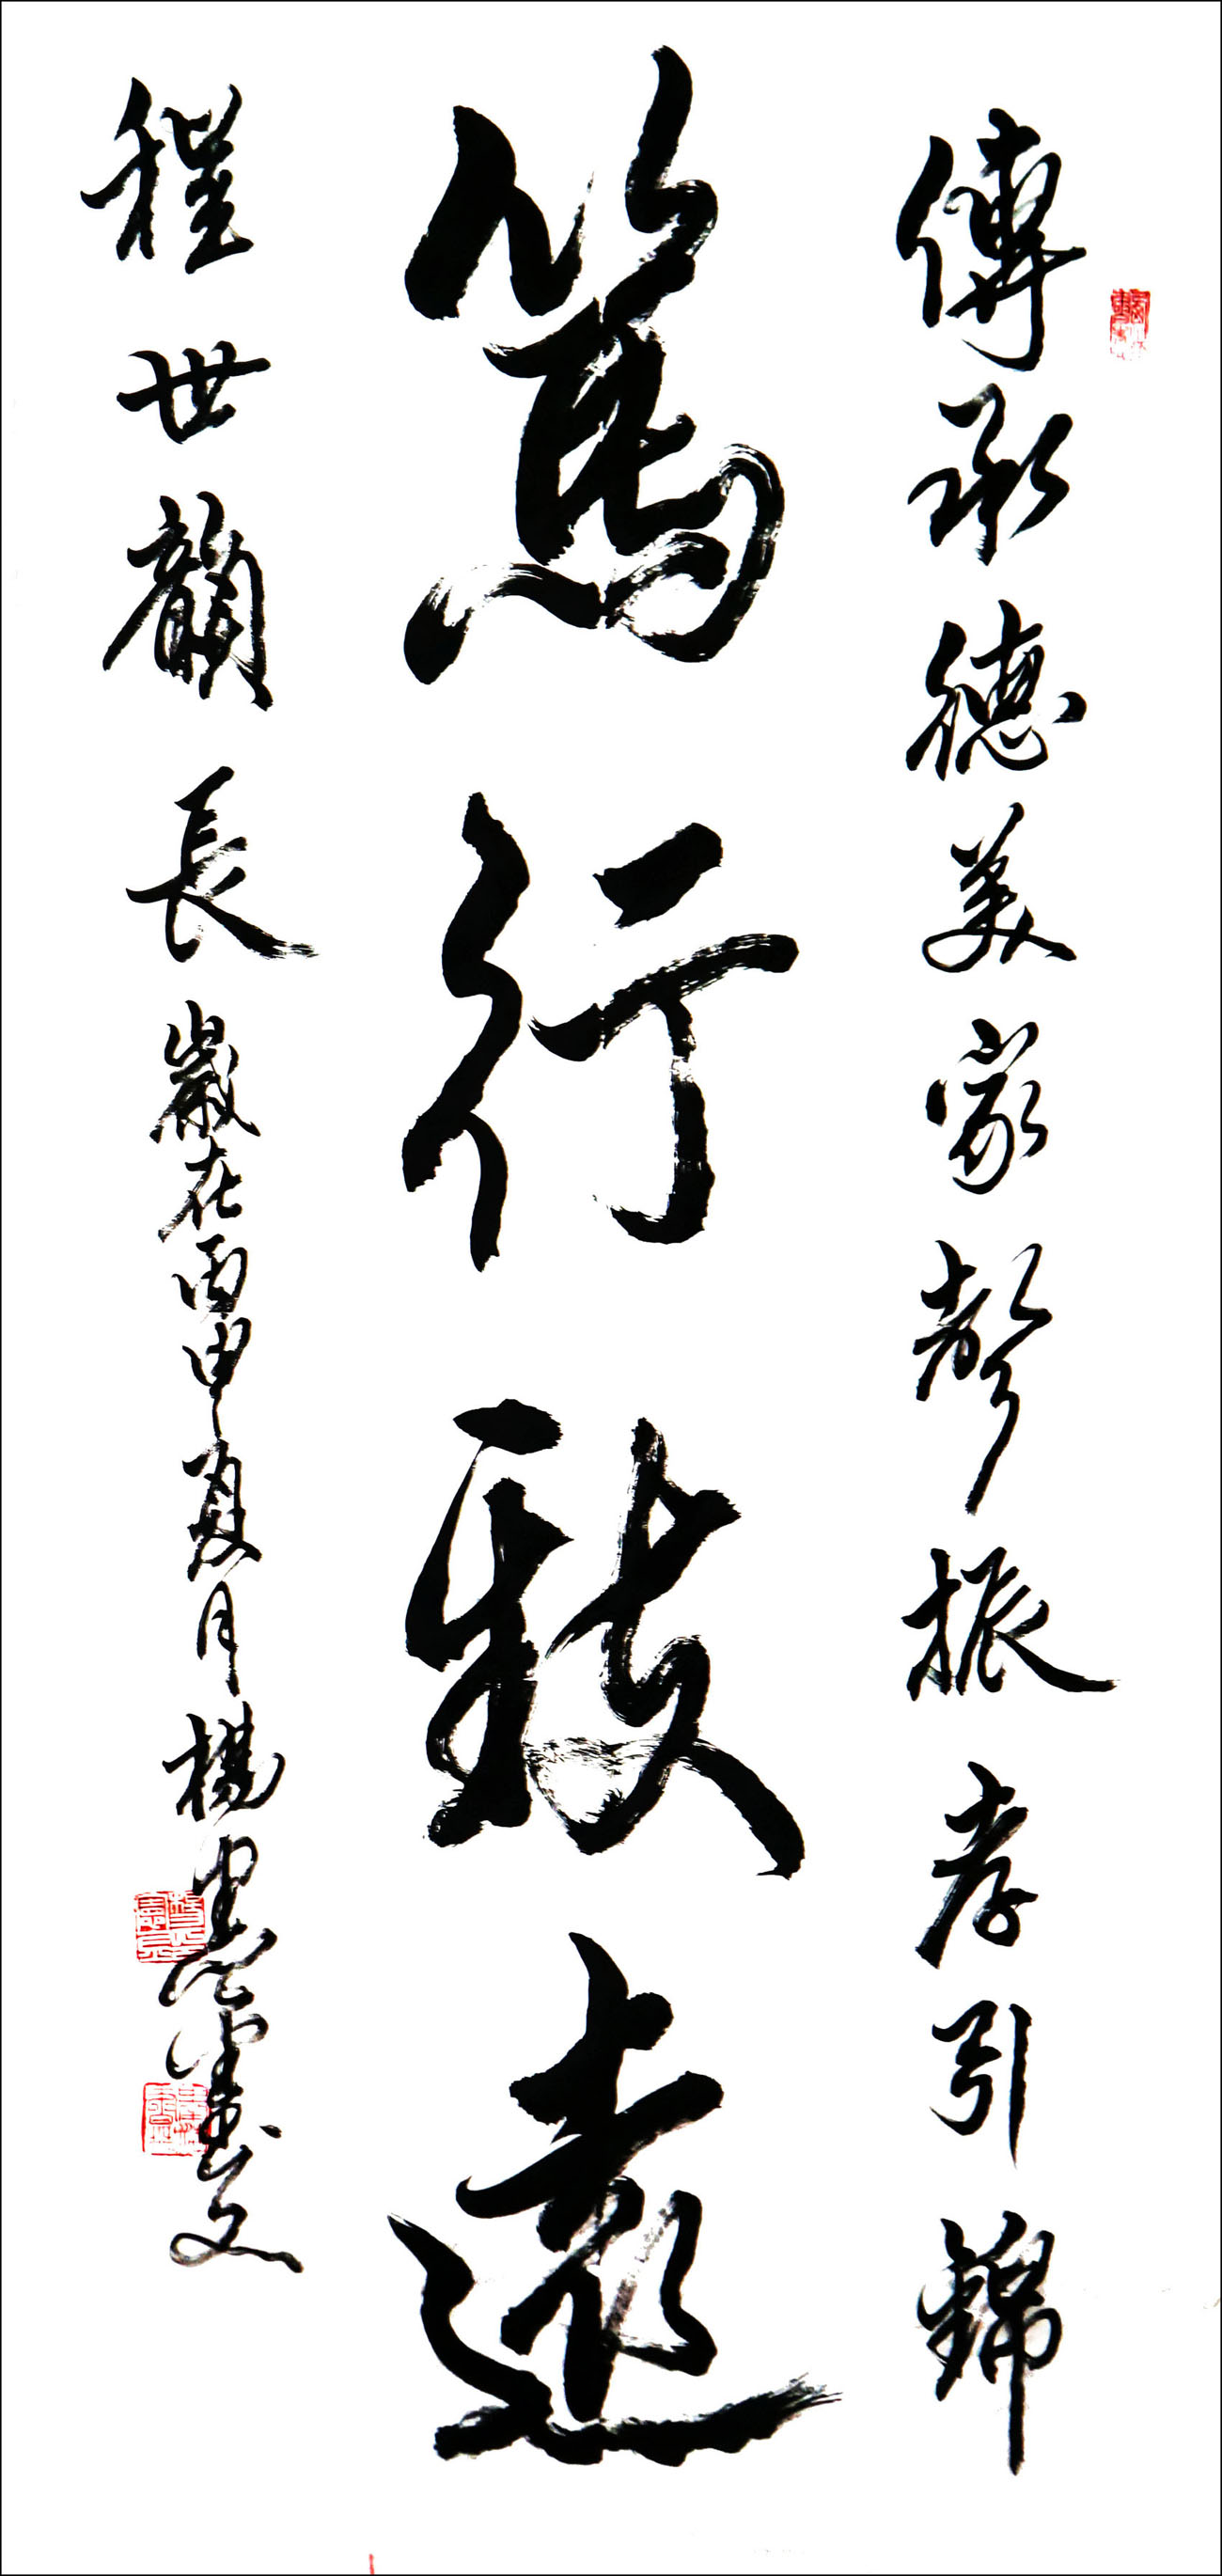 傳承德美家聲振孝引錦
篤行致遠
程世韻長歲在丙申夏月楊忠憲書文